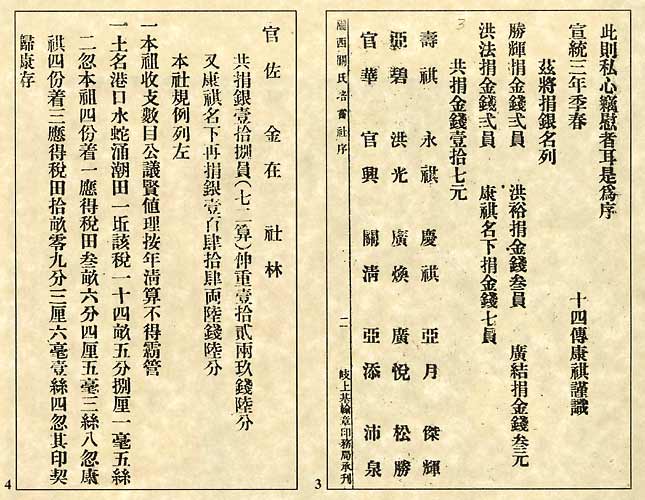 此則私心竊慰者耳是爲序
宣統三年季春　十四傳康祺謹識
茲將捐銀名列
勝輝捐金錢弍員　洪裕捐金錢叁員　廣結捐金錢叁元
洪法捐金錢弍員　康祺名下捐金錢七員
共捐金錢壹拾七元
3
壽祺　永祺　慶祺　亞月　傑輝
亞碧　洪光　廣煥　廣悅　松勝
官華　官興　關清　亞添　沛泉
西關氏 社序　二　岐上基綸章印務局承刊
3
官佐　金在　社林
共捐銀壹拾捌員(七二算)伸重壹拾貳兩玖錢陸分
又康祺名下再捐銀壹百肆拾肆両陸錢陸分
本社規例列左
一本祖收支數目公議賢值理按年清算不得霸管
一土名港口水蛇涌潮田一坵該税一十四畝五分捌厘一毫五絲
二忽本祖四份着一應得税田叁畝六分四厘五毫三絲八忽康
祺四份着三應得税田拾畝零九分三厘六毫壹絲四忽其印契
歸康存
4